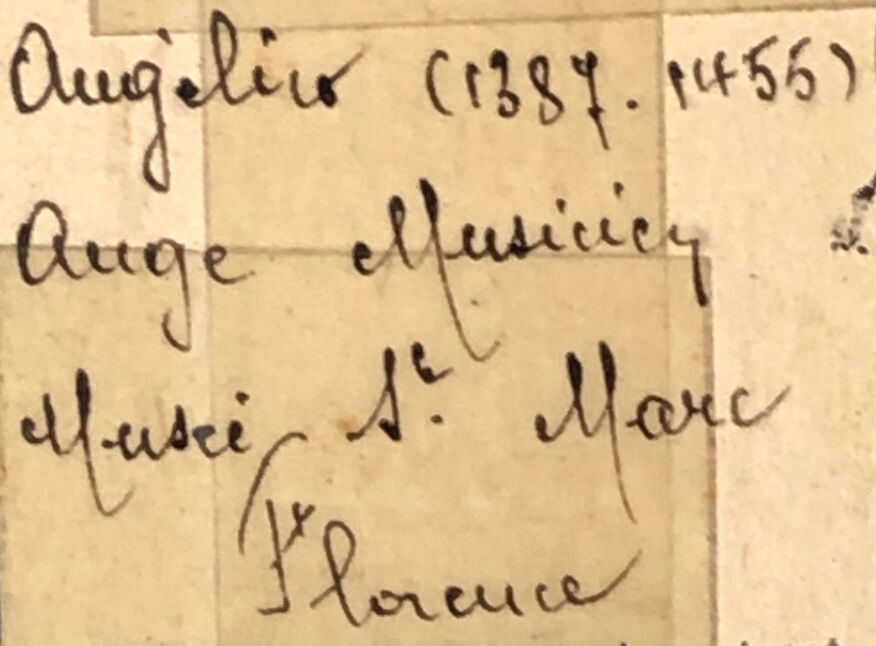 Angelico (1387. 1455)
Ange Musicien
Musée St. Marc
Florence